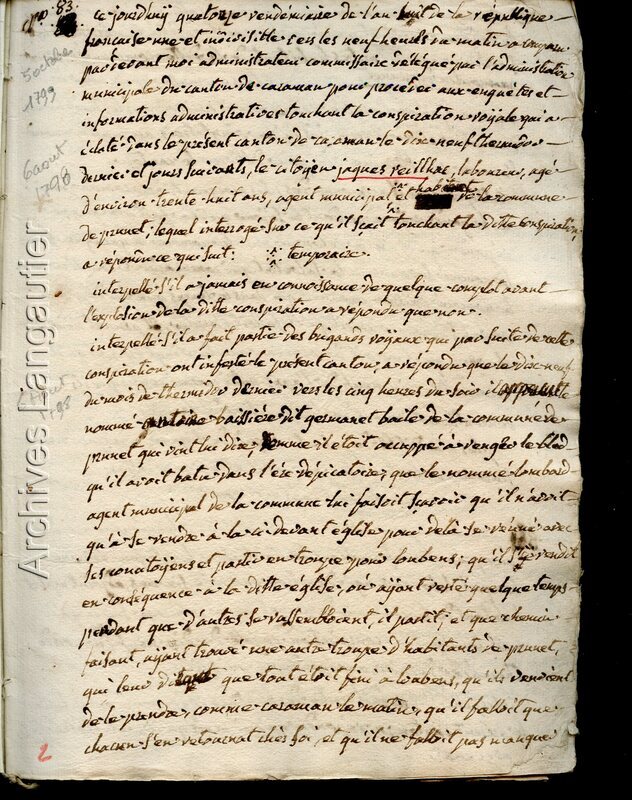 n° 83.
ce jourd'huy quatorze vendémiaire de l'an huit de la république
française une et indivisible sers les neuf heures du matin a comparu
pardevant moi administrateur commissaire délégué par l'administration
municipale du canton de caraman pour procéder aux enquêtes et
informations administratives touchant la conspiration royale qui a
éclaté dans le présent canton de caraman le dix neuf thermidor
dernier et jours suivants, le citoyen jaques reillhac, laboureur, agé
d'environ trente huit ans, agent municipal et habitant de la commune
de prunet; lequel interrogé sur ce qu'il sçait touchant la ditte conspiration,
a répondu ce qui suit: temporaire.
interpellé s'il a jamais eu connoissance de quelque complot avant
l'explosion de la ditte conspiration a répondu que non.
interpellé s'il a fait partie des brigands royaux qui par suite de cette
conspiration ont infesté le présent canton, a répondu que le dix neuf
du mois de thermidor dernier vers les cinq heures du soir le
nommé baissière dit germanet baile de la commune de
prunet qui vint lui dire, comme il étoit occuppé à venger le bled
qu'il avoit batu dans l'ére dépicatoire, que le nommé lombard
agent municipal de la commune lui faisoit sçavoir qu'il n'avoit
qu'à se rendre à la ci devant église pour delà se réunir avec
ses concitoyens et partir en troupe pour loubens; qu'il se rendit
en conséquence à la ditte église, où ayant resté quelque temps
pendant que d'autres se rassembloient, il partit; et que chemin
faisant, ayant trouvé une autre troupe d'habitants de prunet,
qui leur dit que tout étoit fini à loubens, qu'ils venoient
de le prendre, comme caraman le matin, qu'il falloit que
chacun s'en retournat chès soi, et qu'il ne falloit pas manquer
5 octobre
1799
6 aout
1798
Archives Langautier
2